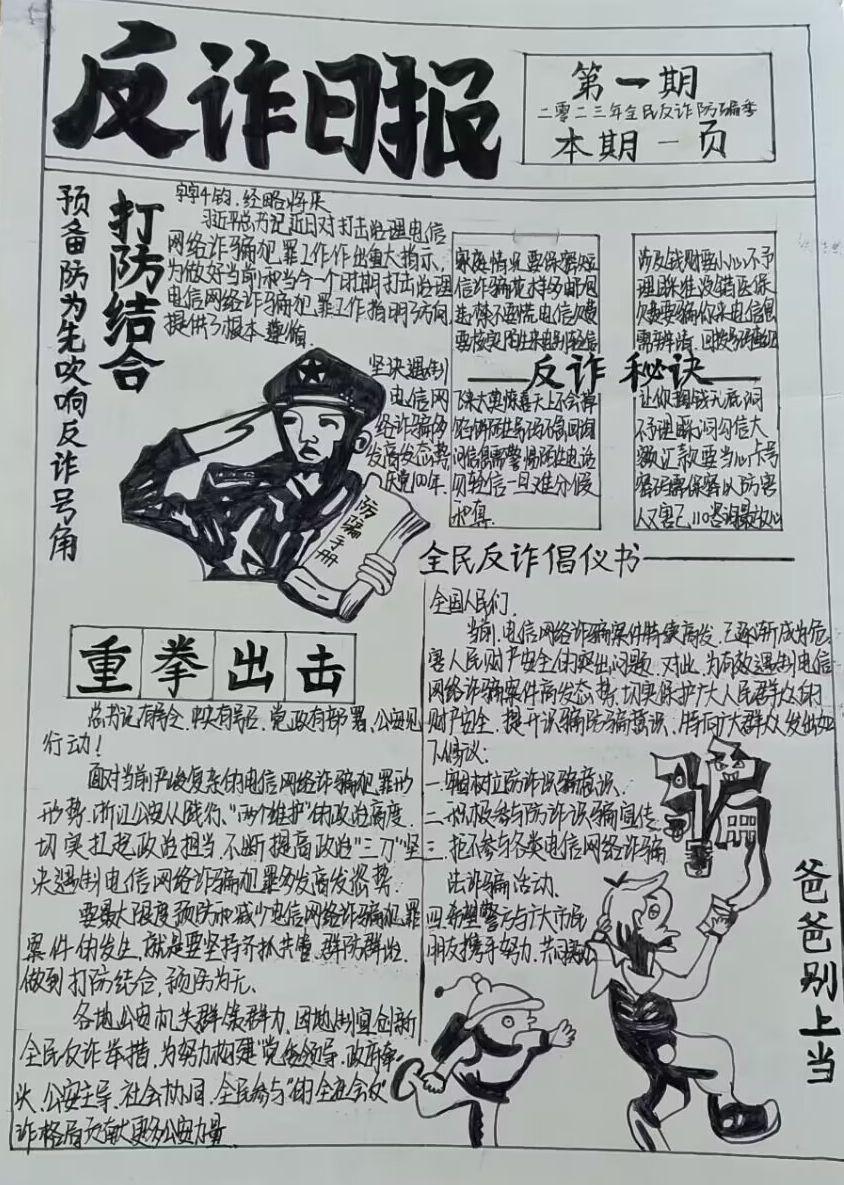 反诈日报
第一期
二零二三年全民反诈防骗季
本期一页
预备防为先吹响反诈号角
打防结合
字字千钧.经略将来
习近平总书记近日对打击治理电信
网络诈骗犯罪工作作出重大指示,
为做好当前和当今一个时期打击治理
电信网络诈骗犯罪工作指明了方向,
提供了根本遵循.
坚决遏制
电信网
络诈骗多
发高发态势
庆党100年.
防骗手册
家庭情况要保密短
信诈骗花样多
不要慌电信欠费
要核实
涉及钱财要小心不予
理睬准没错医保
欠费要骗你来电信息
需辨清.
反诈秘诀
飞来大奖惊喜天上不会掉
信息需警惕陌生电话
勿轻信一旦难分假
和真.
让你掏钱无底洞
不予理睬
汇款要当心卡号
密码需保密以防害
人又害己110咨询最放心
全民反诈倡仪书
全国人民们.
当前.电信网络诈骗案件持续高发.已逐渐成为危
害人民财产安全的突出问题.对此.为有效遏制电信
网络诈骗案件高发态势.切实保护广大人民群众的
财产安全.提升识骗防骗意识.特向广大群众发出如
下倡议:
一.牢固树立防诈识骗意识.
二.积极参与防诈识骗宣传.
三.拒不参与各类电信网络诈骗
法诈骗活动.
四.希望警方与广大市民
朋友携手努力.共同
重拳出击
总书记有号令.中央有号召.党政有部署、公安见
行动!
面对当前严峻复杂的电信网络诈骗犯罪形
形势.浙江公安从践行"两个维护"的政治高度.
切实扛起政治担当.不断提高政治"三力"坚
决遏制电信网络诈骗犯罪多发高发态势.
要最大限度预防和减少电信网络诈骗犯罪
案件的发生.就是要坚持齐抓共管.群防群治.
做到打防结合,预防为先.
各地公安机关群策群力.因地制宜创新
全民反诈举措.为努力构建"党委领导.政府牵
头.公安主导.社会协同.全民参与"的全社会反
诈格局贡献更多公安力量.
爸爸别上当